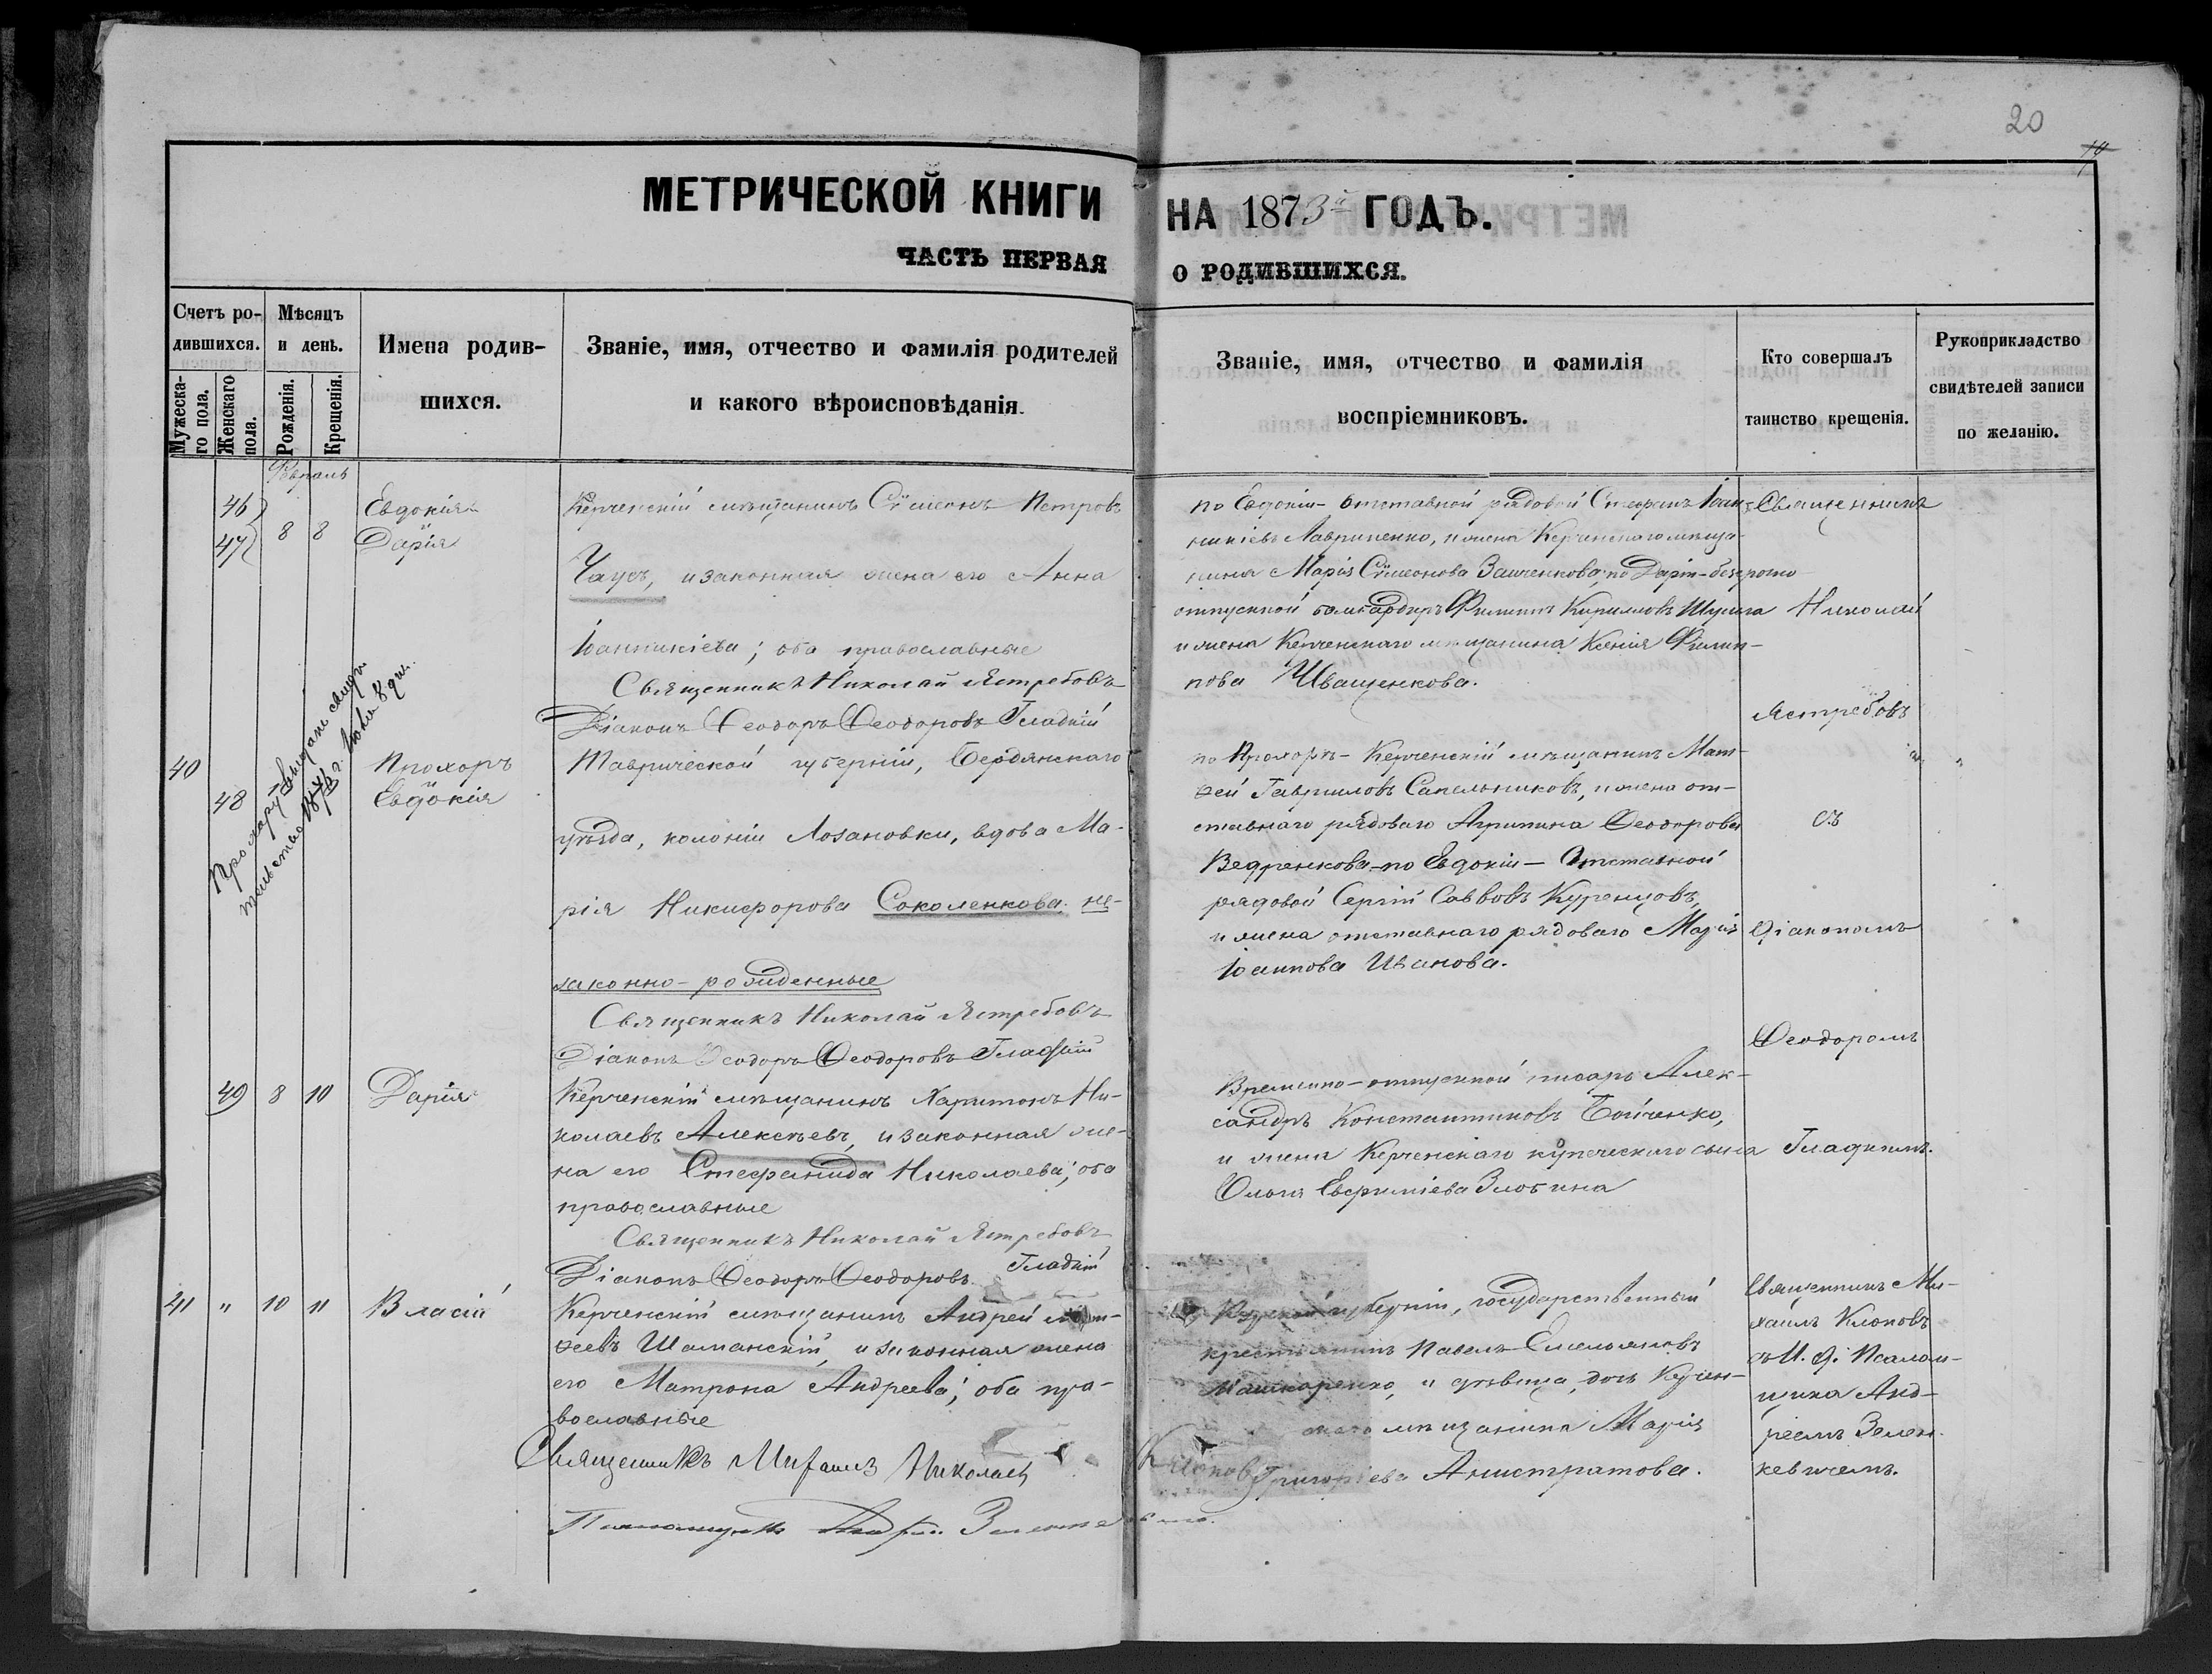 20
МЕТРИЧЕСКОЙ КНИГИ НА 1873й ГОДЪ.
ЧАСТЬ ПЕРВАЯ О РОДИВШИХСЯ.
Счетъ ро-
дившихся.
Мужеска-
го пола.
Женскаго
пола.
Мѣсяцъ
и день.
Рожденія.
Крещенія.
Имена родив-
шихся.
Званіе, имя, отчество и фамилія родителей
и какого вѣроисповѣданія.
Званіе, имя, отчество и фамилія
воспріемниковъ.
Кто совершалъ
таинство крещенія.
Рукоприкладство
свидѣтелей записи
по желанію.
Февраль
46
47
8 8
Евдокія
Дарія
Керченскій мѣщанинъ Сѵмеонъ Петровъ
Чаусъ, и законная жена его Анна
Іоанникіева; оба православные
Священникъ Николай Ястребовъ
Діаконъ Ѳеодоръ Ѳеодоровъ Гладкій
по Евдокіи - отставной рядовой Стефанъ Іоан-
никіевъ Лавриненко, и жена Керченскаго мѣща-
нина Марія Сѵмеонова Заиченкова; по Даріи - безсрочно
отпускной бомбардиръ Филиппъ Кирилловъ Шульга
и жена Керченскаго мѣщанина Ксенія Филип-
пова Иващенкова.
Священникъ
Николай
Ястребовъ
съ
Діакономъ
Ѳеодоромъ
Гладкимъ.
40
48
Прохору выдано свидѣ-
тельство 18 г. Іюля 8 дня.
Прохоръ
Евдокія
Таврической губерніи, Бердянскаго
уѣзда, колоніи Лозановки, вдова Ма-
рія Никифорова Соколенкова; не-
законно-рожденные
Священникъ Николай Ястребовъ
Діаконъ Ѳеодоръ Ѳеодоровъ Гладкій
по Прохорѣ - Керченскій мѣщанинъ Мат-
ѳей Гавриловъ Сапельниковъ, и жена от-
ставнаго рядоваго Агрипина Ѳеодорова
Ведренкова - по Евдокіи - Отставной
рядовой Сергій Саввовъ Куренцовъ,
и жена отставнаго рядоваго Марія
Іоаннова Иванова.
49 8 10 Дарія
Керченскій мѣщанинъ Харитонъ Ни-
колаевъ Алексѣевъ, и законная же-
на его Стефанида Николаева; оба
православные
Священникъ Николай Ястребовъ
Діаконъ Ѳеодоръ Ѳеодоровъ Гладкій
Временно-отпускной писарь Алек-
сандръ Константиновъ Бойченко,
и жена Керченскаго купеческаго сына
Ольга Евфиміева Злобина
41 " 10 11 Власій
Керченскій мѣщанинъ Андрей Мат-
ѳеевъ Шаманскій, и законная жена
его Матрона Андреева; оба пра-
вославные
Священникъ Михаилъ Николаевъ Клоповъ
Псаломщикъ Андрей
губерніи, государственный
крестьянинъ Павелъ Емельяновъ
Машкаренко, и дѣвица, дочь Керчен-
скаго мѣщанина Марія
Григоріева Анистратова.
Священникъ Ми-
хаилъ Клоповъ
съ И. д. Псалом-
щика Анд-
реемъ Зелен-
кевичемъ.